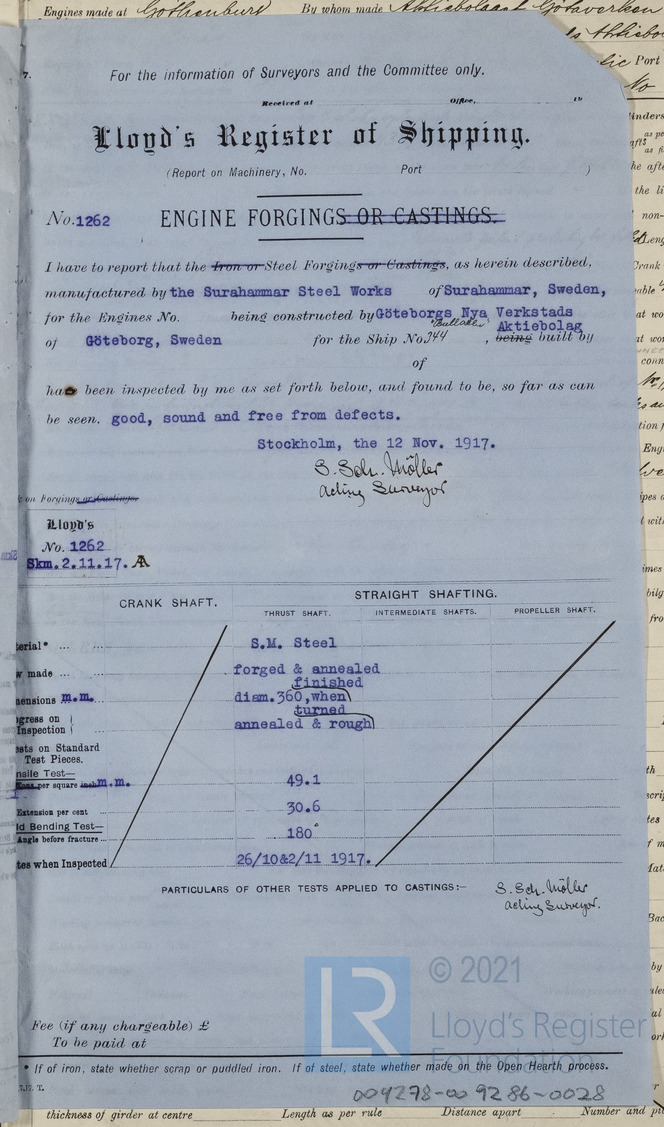 Engines made at Gothenburg By whom made Aktiebolaget Götaverken
Port
No
7.
For the information of Surveyors and the Committee only.
Received at Office, 19
Lloyd's Register of Shipping.
(Report on Machinery, No. Port )
No. 1262 ENGINE FORGINGS OR CASTINGS.
I have to report that the Iron or Steel Forgings or Castings, as herein described,
manufactured by the Surahammar Steel Works of Surahammar, Sweden,
for the Engines No. being constructed by Göteborgs Nya Verkstads
Aktiebolag
of Göteborg, Sweden for the Ship No. 344 , being built by
of
has been inspected by me as set forth below, and found to be, so far as can
be seen, good, sound and free from defects.
Stockholm, the 12 Nov. 1917.
S. Sch. Möller
acting Surveyor
on Forgings or Castings.
Lloyd's
No. 1262
Skm. 2.11.17.
CRANK SHAFT. STRAIGHT SHAFTING.
THRUST SHAFT. INTERMEDIATE SHAFTS. PROPELLER SHAFT.
erial* ... ... S.M. Steel
w made ... ... forged & annealed
finished
ensions m.m. ... diam. 360, when
turned
gress on
Inspection annealed & rough
sts on Standard
Test Pieces.
nsile Test—
Tons per square inch m.m. 49.1
Extension per cent 30.6
ld Bending Test—
Angle before fracture ... 180°
tes when Inspected 26/10&2/11 1917.
PARTICULARS OF OTHER TESTS APPLIED TO CASTINGS:—
S. Sch. Möller
acting Surveyor.
© 2021
LR
Lloyd's Register
Foundation
Fee (if any chargeable) £
To be paid at
* If of iron, state whether scrap or puddled iron. If of steel, state whether made on the Open Hearth process.
7.17. T.
004278-009286-0028
thickness of girder at centre Length as per rule Distance apart Number and